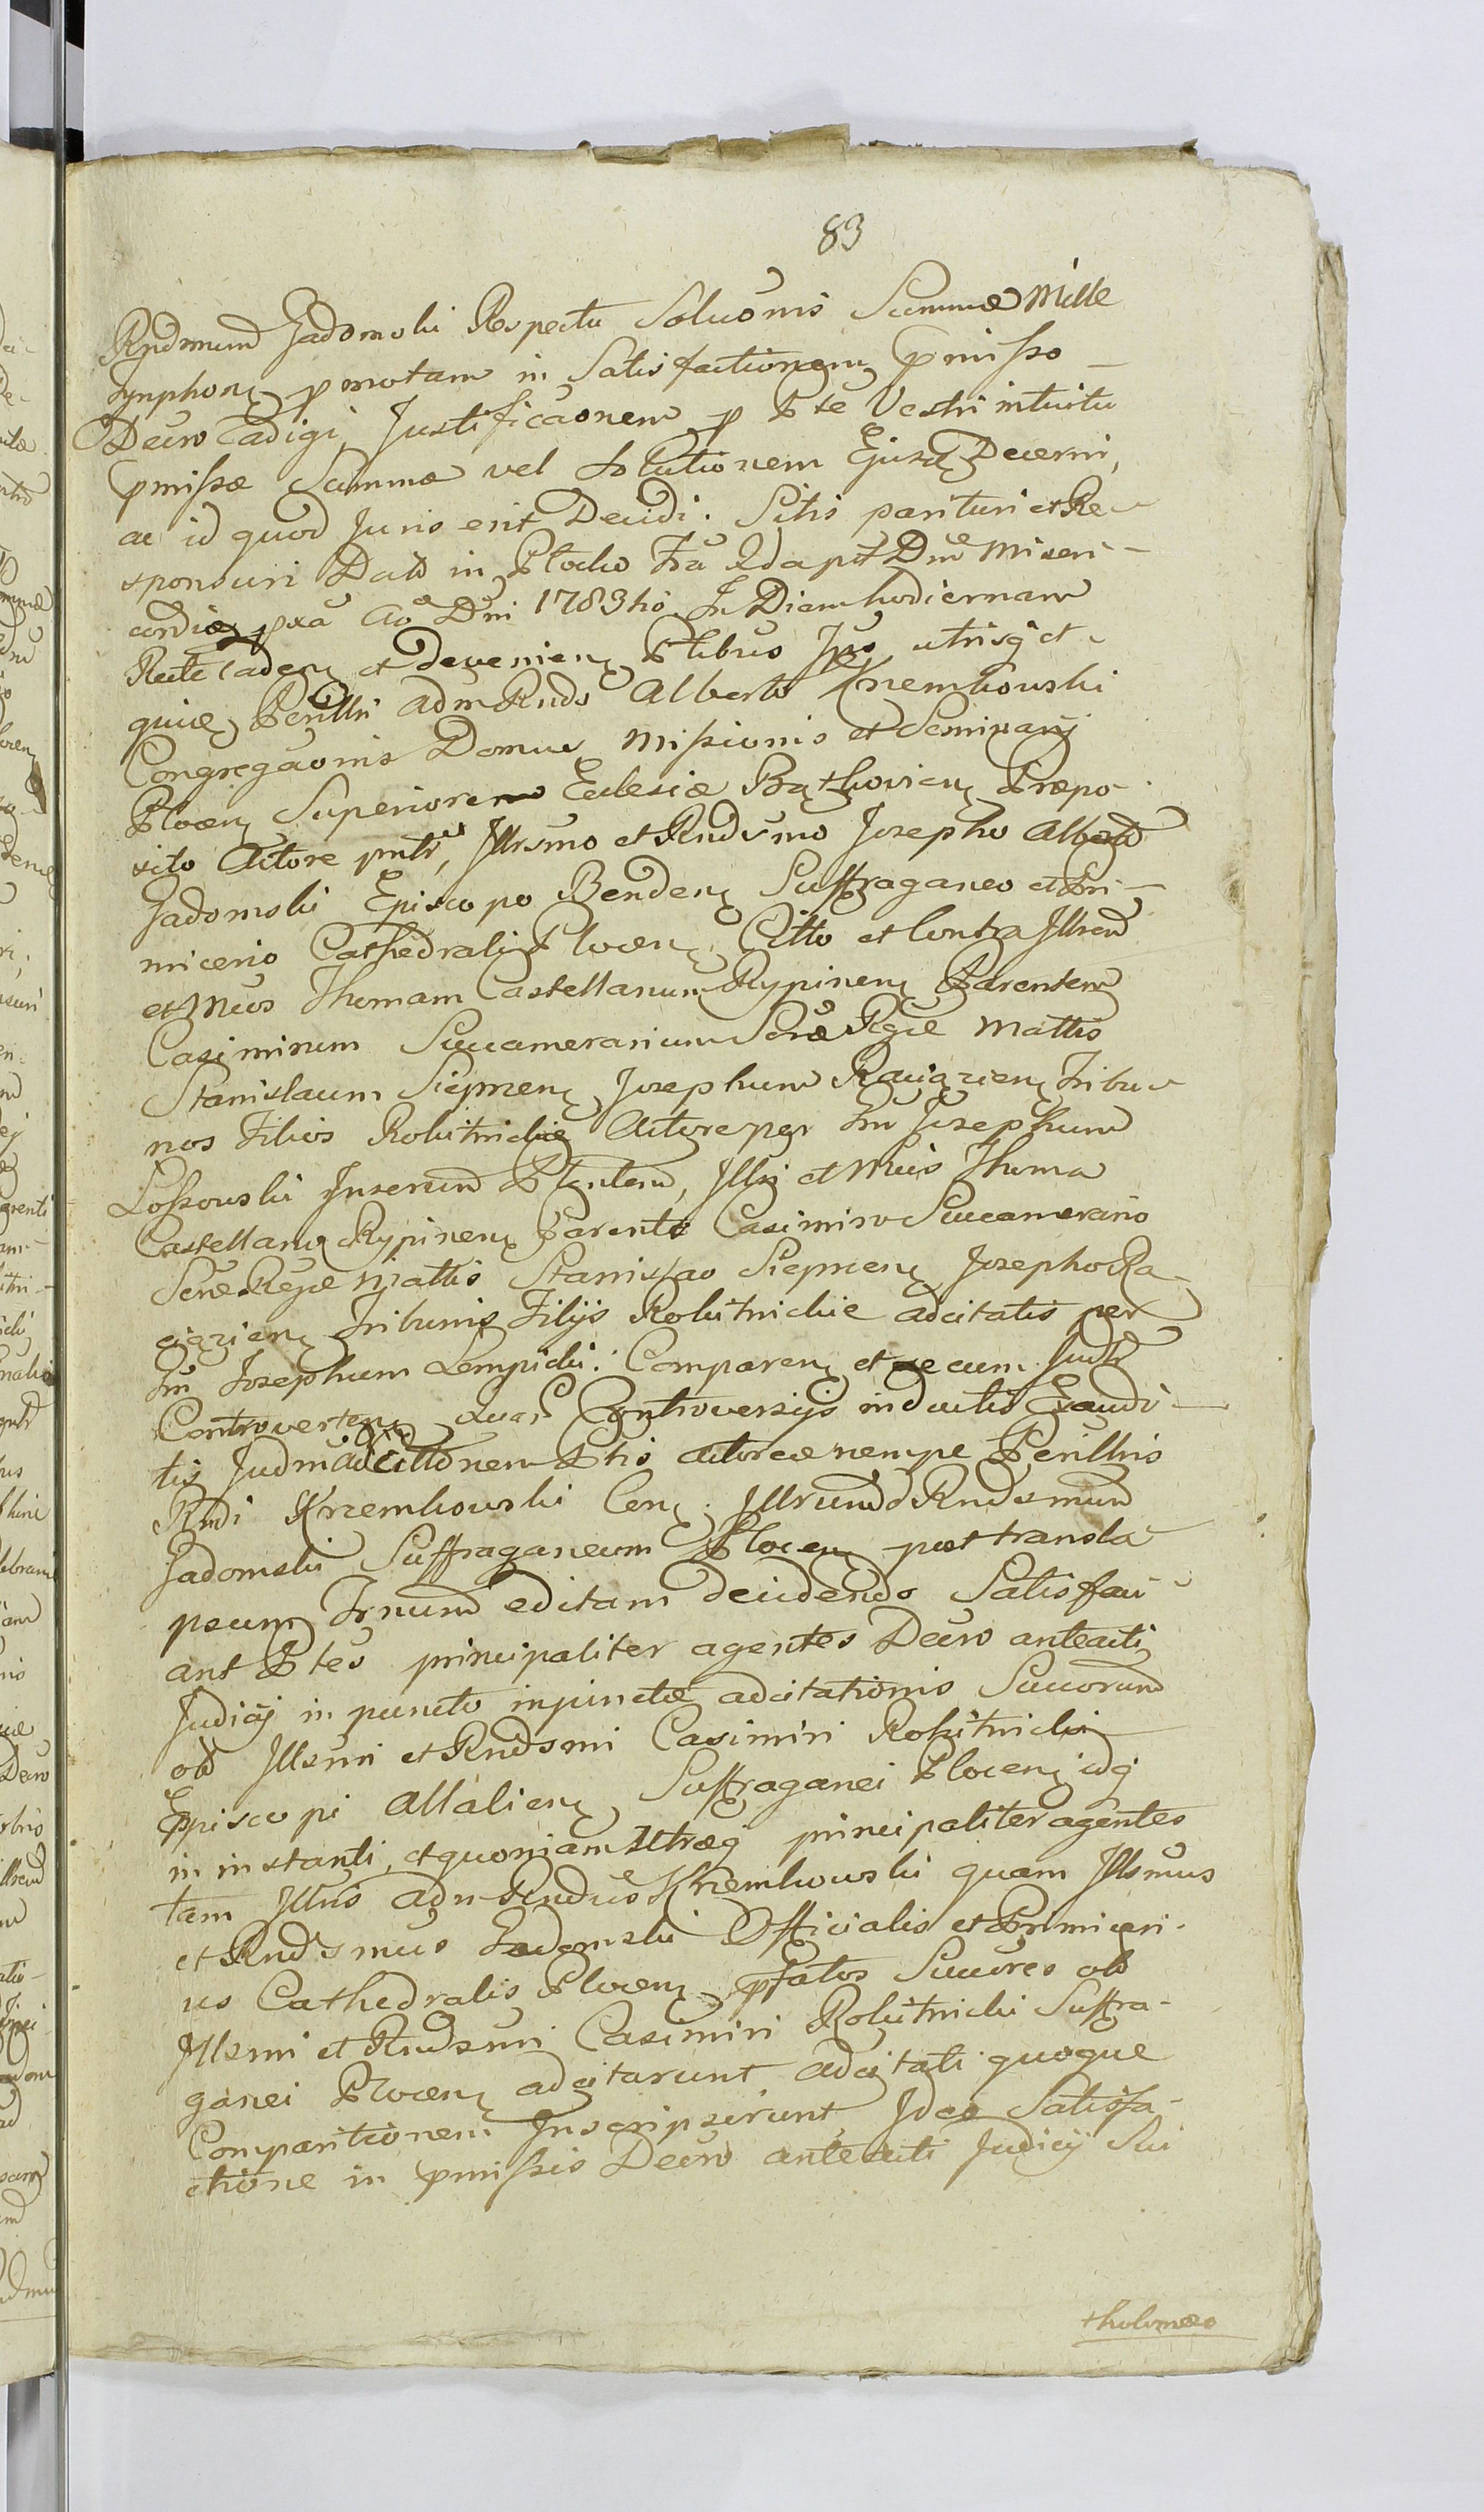 83
Rndmum Gadomski Respectu Soluonis Summæ Mille
Tynphonꝫ pmotam in Satisfactionem pmisso
Decro adigi Justificaonem p Pte Vestri intuitu
pmissæ Summæ vel Solutionem Ejusdꝫ Decerni,
ac id quod Juris erit Decidi. Sitis parituri et Re-
sponsuri Datt in Plocko Fra 2da pst Dnc Miseri-
cordiæ pxa Ao Dni 1783tio In Diem hodiernam
Recte cadenꝫ et devenienꝫ Ptibus Ipsis utrisqꝫ et
quidꝫ Perilli adm Rndo Alberto Krzemkowski
Congregaonis Domus Missionis et Seminarij
Plocenꝫ Superiorem Eclesiæ Bątkovienꝫ Præpo-
sito Actore pntr, Illrsmo et Rndsmo Josepho Alberto
Gadomski Episcopo Bendenꝫ Suffraganeo et Pri-
micerio Cathedrali Plocenꝫ Citto et Contra Illrem
et Mcos Thomam Castellanum Rypinenꝫ Parentem
Casimirum Succamerarium Scræ Rgiæ Mattis
Stanislaum Sieprcenꝫ Josephum Raciązienꝫ Tribu-
nos Filios Rokitnickie Actore per Gn Josephum
Lossowski Inserend Plenten, Illri et Mcis Thoma
Castellano Rypinenꝫ Parente Casimiro Succamerario
Scræ Regiæ Mattis Stanislao Sieprcenꝫ Josepho Ra-
ciązienꝫ Tribunis Filijs Rokitnickie adcitatis per
Gn Josephum Lempicki. Comparenꝫ et secum Judtr
Controvertenꝫ quar Controversijs inductis Exaudi-
tis Judm adcittonem Ptis Actoreæ nempe Perillris
Rndi Krzemkowski Cenꝫ. Illrumd Rndsmum
Gadomski Suffraganeum Plocen post transla
psum Trnum editam decidendo Satisfaci-
ant Ptes principaliter agentes Decro anteacti
Judicij in puncto injunctæ adcitationis Succorum
ob Illsmi et Rndsmi Casimiri Rokitnicki
Episcopi Allalienꝫ Suffraganei Plocenꝫ idqꝫ
in instanti, et quoniam Utræqꝫ principaliter agentes
tam Illris adm Rndus Krzemkowski quam Illsmus
et Rndsmus Gadomski Officialis et Primiceri-
us Cathedralis Plocenꝫ pfatos Succores ob
Illsmi et Rndsmi Casimiri Rokitnicki Suffra-
ganei Plocenꝫ adcitarunt adcitati quoque
Comparitionem Inscripserunt Ideo Satisfa-
ctione in pmissis Decro anteacti Judicij Sui
tholomæo